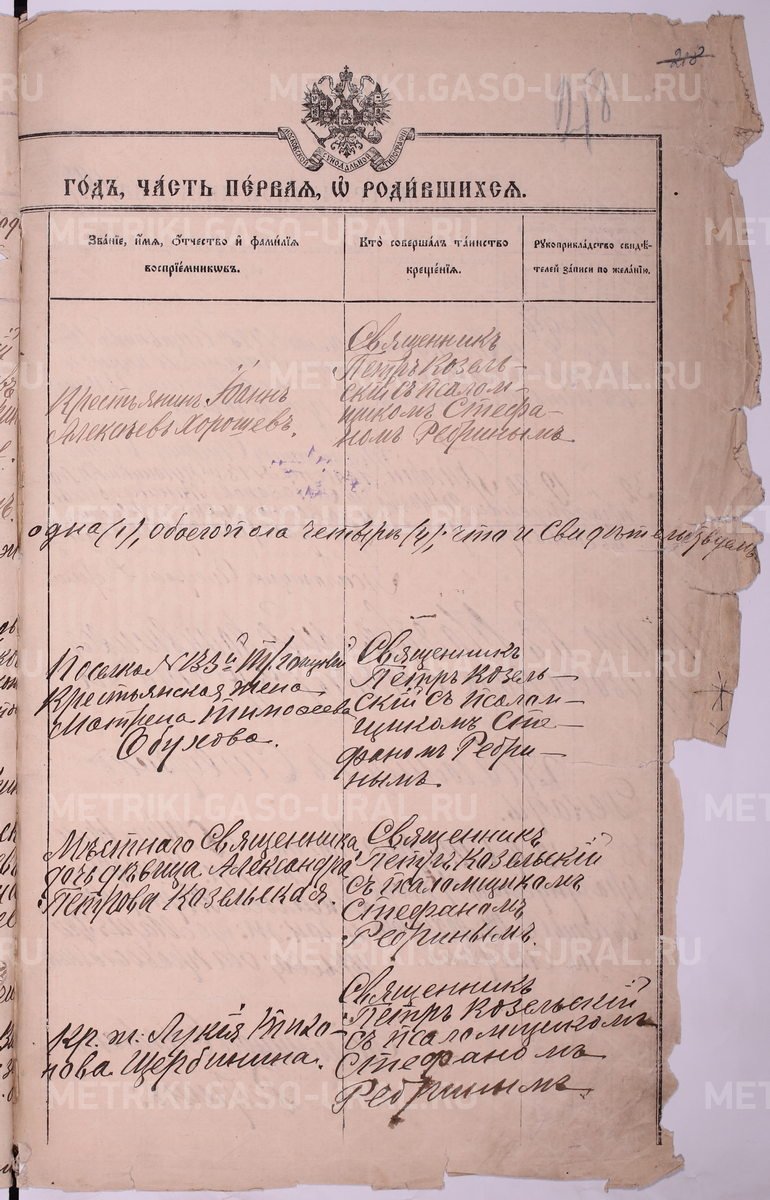 218
218
МОСКОВСКОЙ СѴНОДАЛЬНОЙ ТИПОГРАФІИ
ГО́ДЪ, ЧА́СТЬ ПЕ́РВАЯ, Ѡ҆ РОДИ́ВШИХСЯ.
Зва́нїе, и҆́мя, ѻ҆́тчество и҆ фами́лїя
воспрїе́мникѡвъ.
Кто̀ соверша́лъ та́инство
креще́нїя.
Рукоприкла́дство свидѣ́-
телей за́писи по жела́нїю.
Крестьянинъ Іоаннъ
Алексѣевъ Хорошевъ.
Священникъ
Петръ Козель-
скій съ псалом-
щикомъ Стефа-
номъ Ребринымъ
одна (1), обоего пола четыре (4); что и свидѣтельствуемъ
Поселка № 133й
Крестьянская жена
Матрена Тимофеева
Обухова.
Священникъ
Петръ Козель-
скій съ псалом-
щикомъ Сте-
фаномъ Ребри-
нымъ.
Мѣстнаго Священника
дочь дѣвица Александра
Петрова Козельская.
Священникъ
Петръ Козельскій
съ псаломщикомъ
Стефаномъ
Ребринымъ.
Кр. ж. Лукія Тихо-
нова Щербинина.
Священникъ
Петръ Козельскій
съ псаломщикомъ
Стефаномъ
Ребринымъ
METRIKI.GASO-URAL.RU